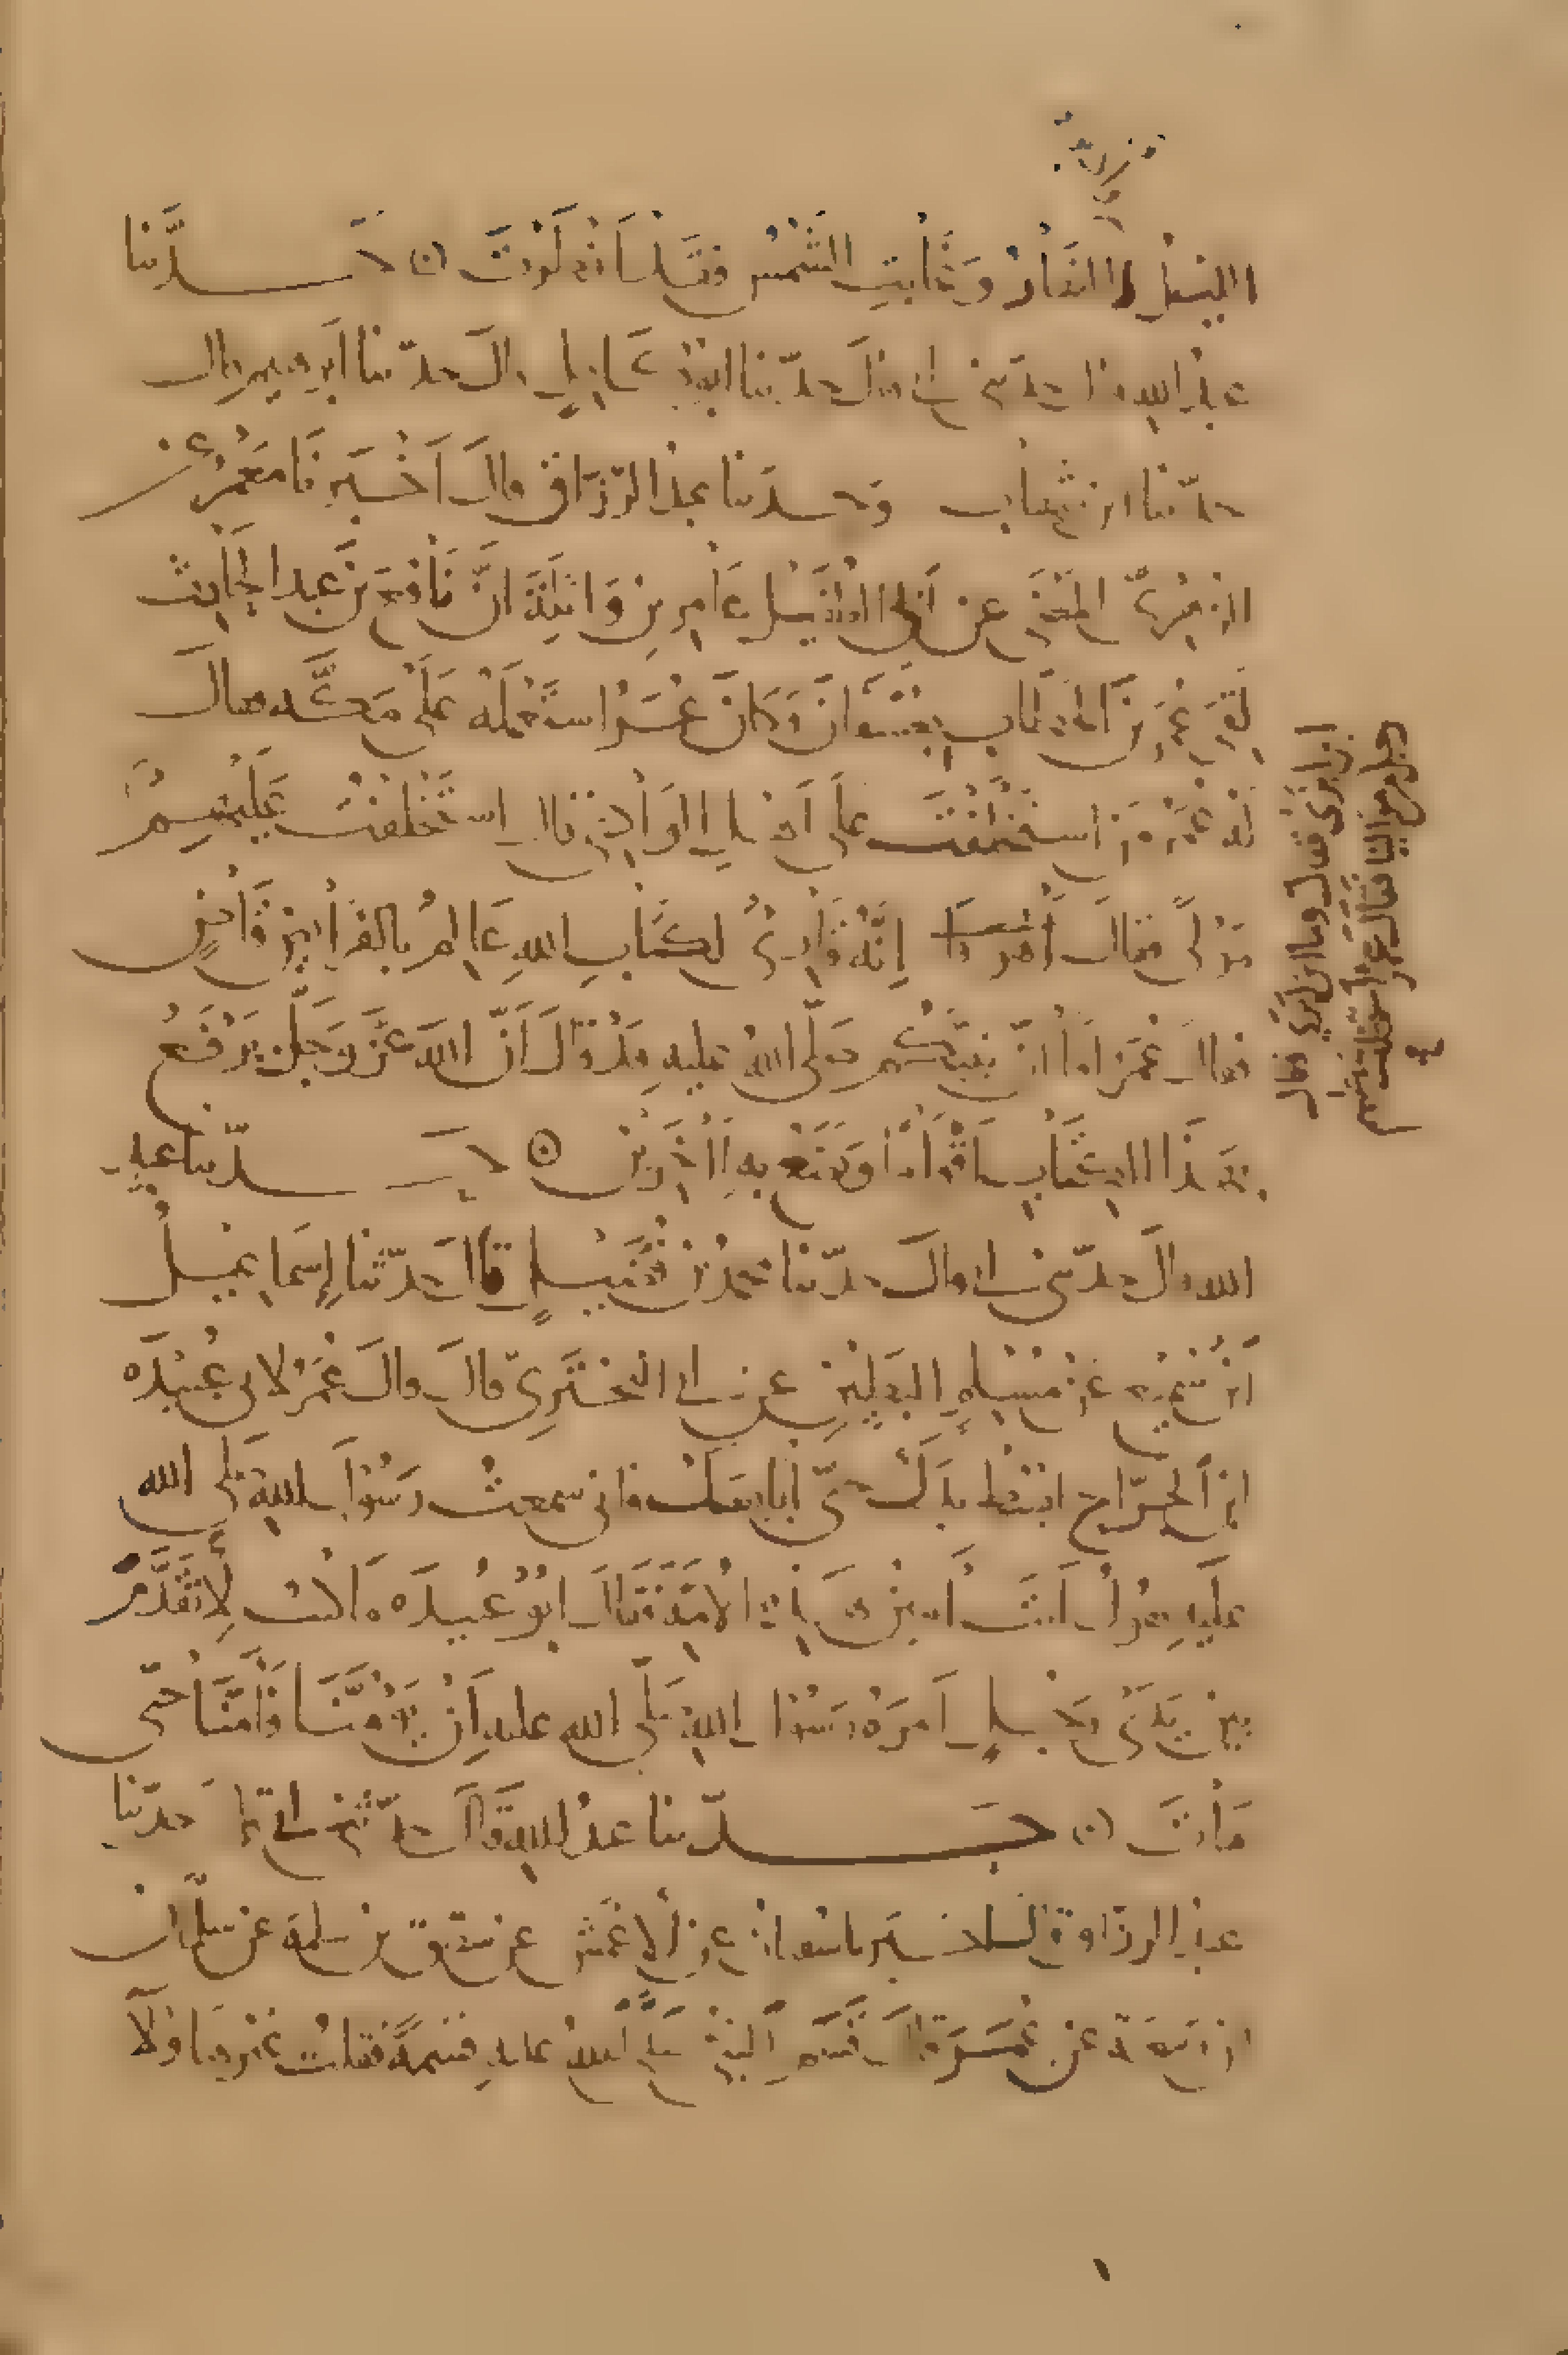 الليل والنهار وغابت الشمس فقد افطرت ۞ حدثنا
عبد الله قال حدثني ابي قال حدثنا ابو كامل قال حدثنا ابرهيم قال
حدثنا ابن شهاب وحدثنا عبد الرزاق قال اخبرنا معمر عن
الزهري المعنى عن ابي الطفيل عامر بن واثلة ان نافع بن عبد الحارث
لقي عمر بن الخطاب بعسفان وكان عمر استعمله على مكة فقال
له عمر من استخلفت على اهل الوادي قال استخلفت عليهم
مولى فقال انه قارئ لكتاب الله عالم بالفرائض قاض
فقال عمر اما ان نبيكم صلى الله عليه قد قال ان الله عز وجل يرفع
بهذا الكتاب اقواما ويضع به اخرين ۞ حدثنا عبد
الله قال حدثني ابي قال حدثنا محمد بن فضيل قال حدثنا اسماعيل
ابن سميع عن مسلم البطين عن ابي البختري قال قال عمر لابي عبيدة
ابن الجراح ابسط يدك حتى ابايعك فاني سمعت رسول الله صلى الله
عليه يقول انت امين هذه الامة فقال ابو عبيدة ما كنت لاتقدم
بين يدي رجل امره رسول الله صلى الله عليه ان يؤمنا فأمنا حتى
مات ۞ حدثنا عبد الله قال حدثني ابي قال حدثنا
عبد الرزاق قال اخبرنا سفيان عن الاعمش عن شقيق بن سلمة عن سلمان
ابن ربيعة عن عمر قال قسم النبي صلى الله عليه قسمة فقلت غير هاولا
ابن ابزى فقال وما ابن ابزى فقال
رجل من موالينا فقال عمر استخلفت عليهم